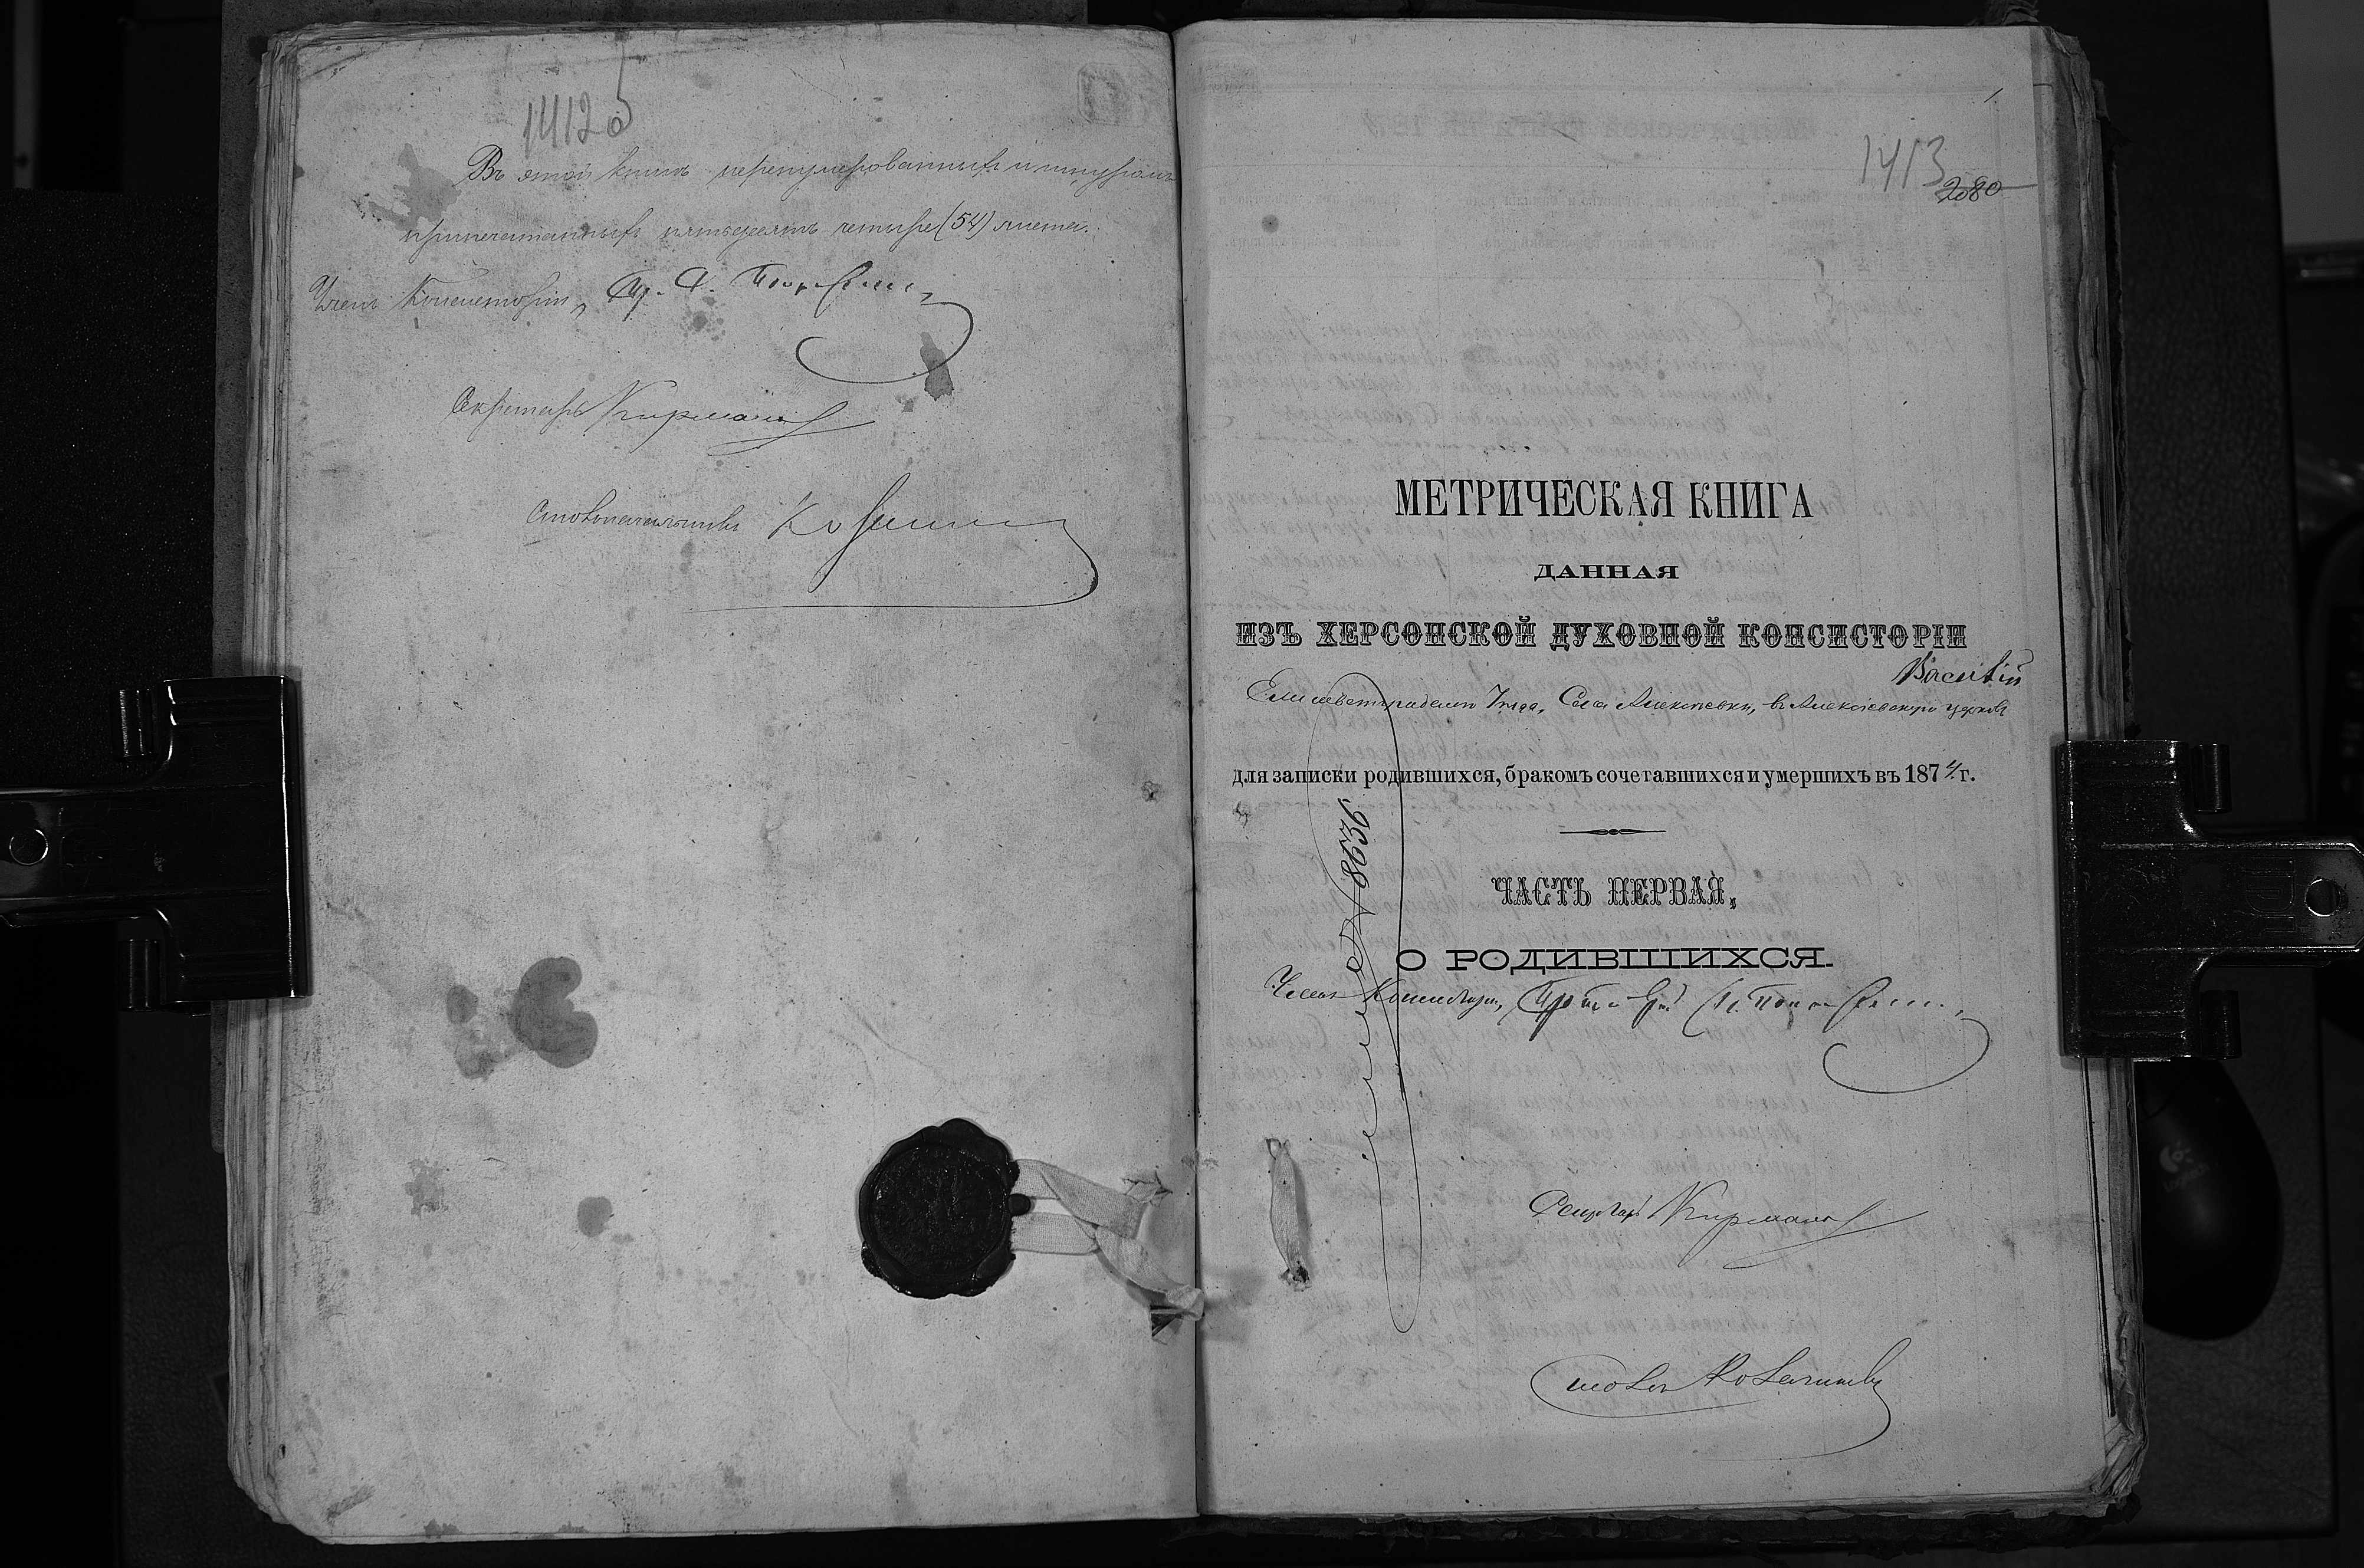 1412 об
Въ этой книгѣ перенумерованныхъ и шнуромъ
припечатанныхъ пятьдесятъ четыре (54) листа.
Членъ Консисторіи,
Секретарь
Столоначальникъ
1
1413
2080
МЕТРИЧЕСКАЯ КНИГА
ДАННАЯ
ИЗЪ ХЕРСОНСКОЙ ДУХОВНОЙ КОНСИСТОРІИ
Елисаветградскаго Уѣзда, Села Алексѣевки, въ Алексѣевскую церковь
для записки родившихся, бракомъ сочетавшихся и умершихъ въ 1874 г.
№ 8636
ЧАСТЬ ПЕРВАЯ,
О РОДИВШИХСЯ.
Членъ Консисторіи,
Секретарь